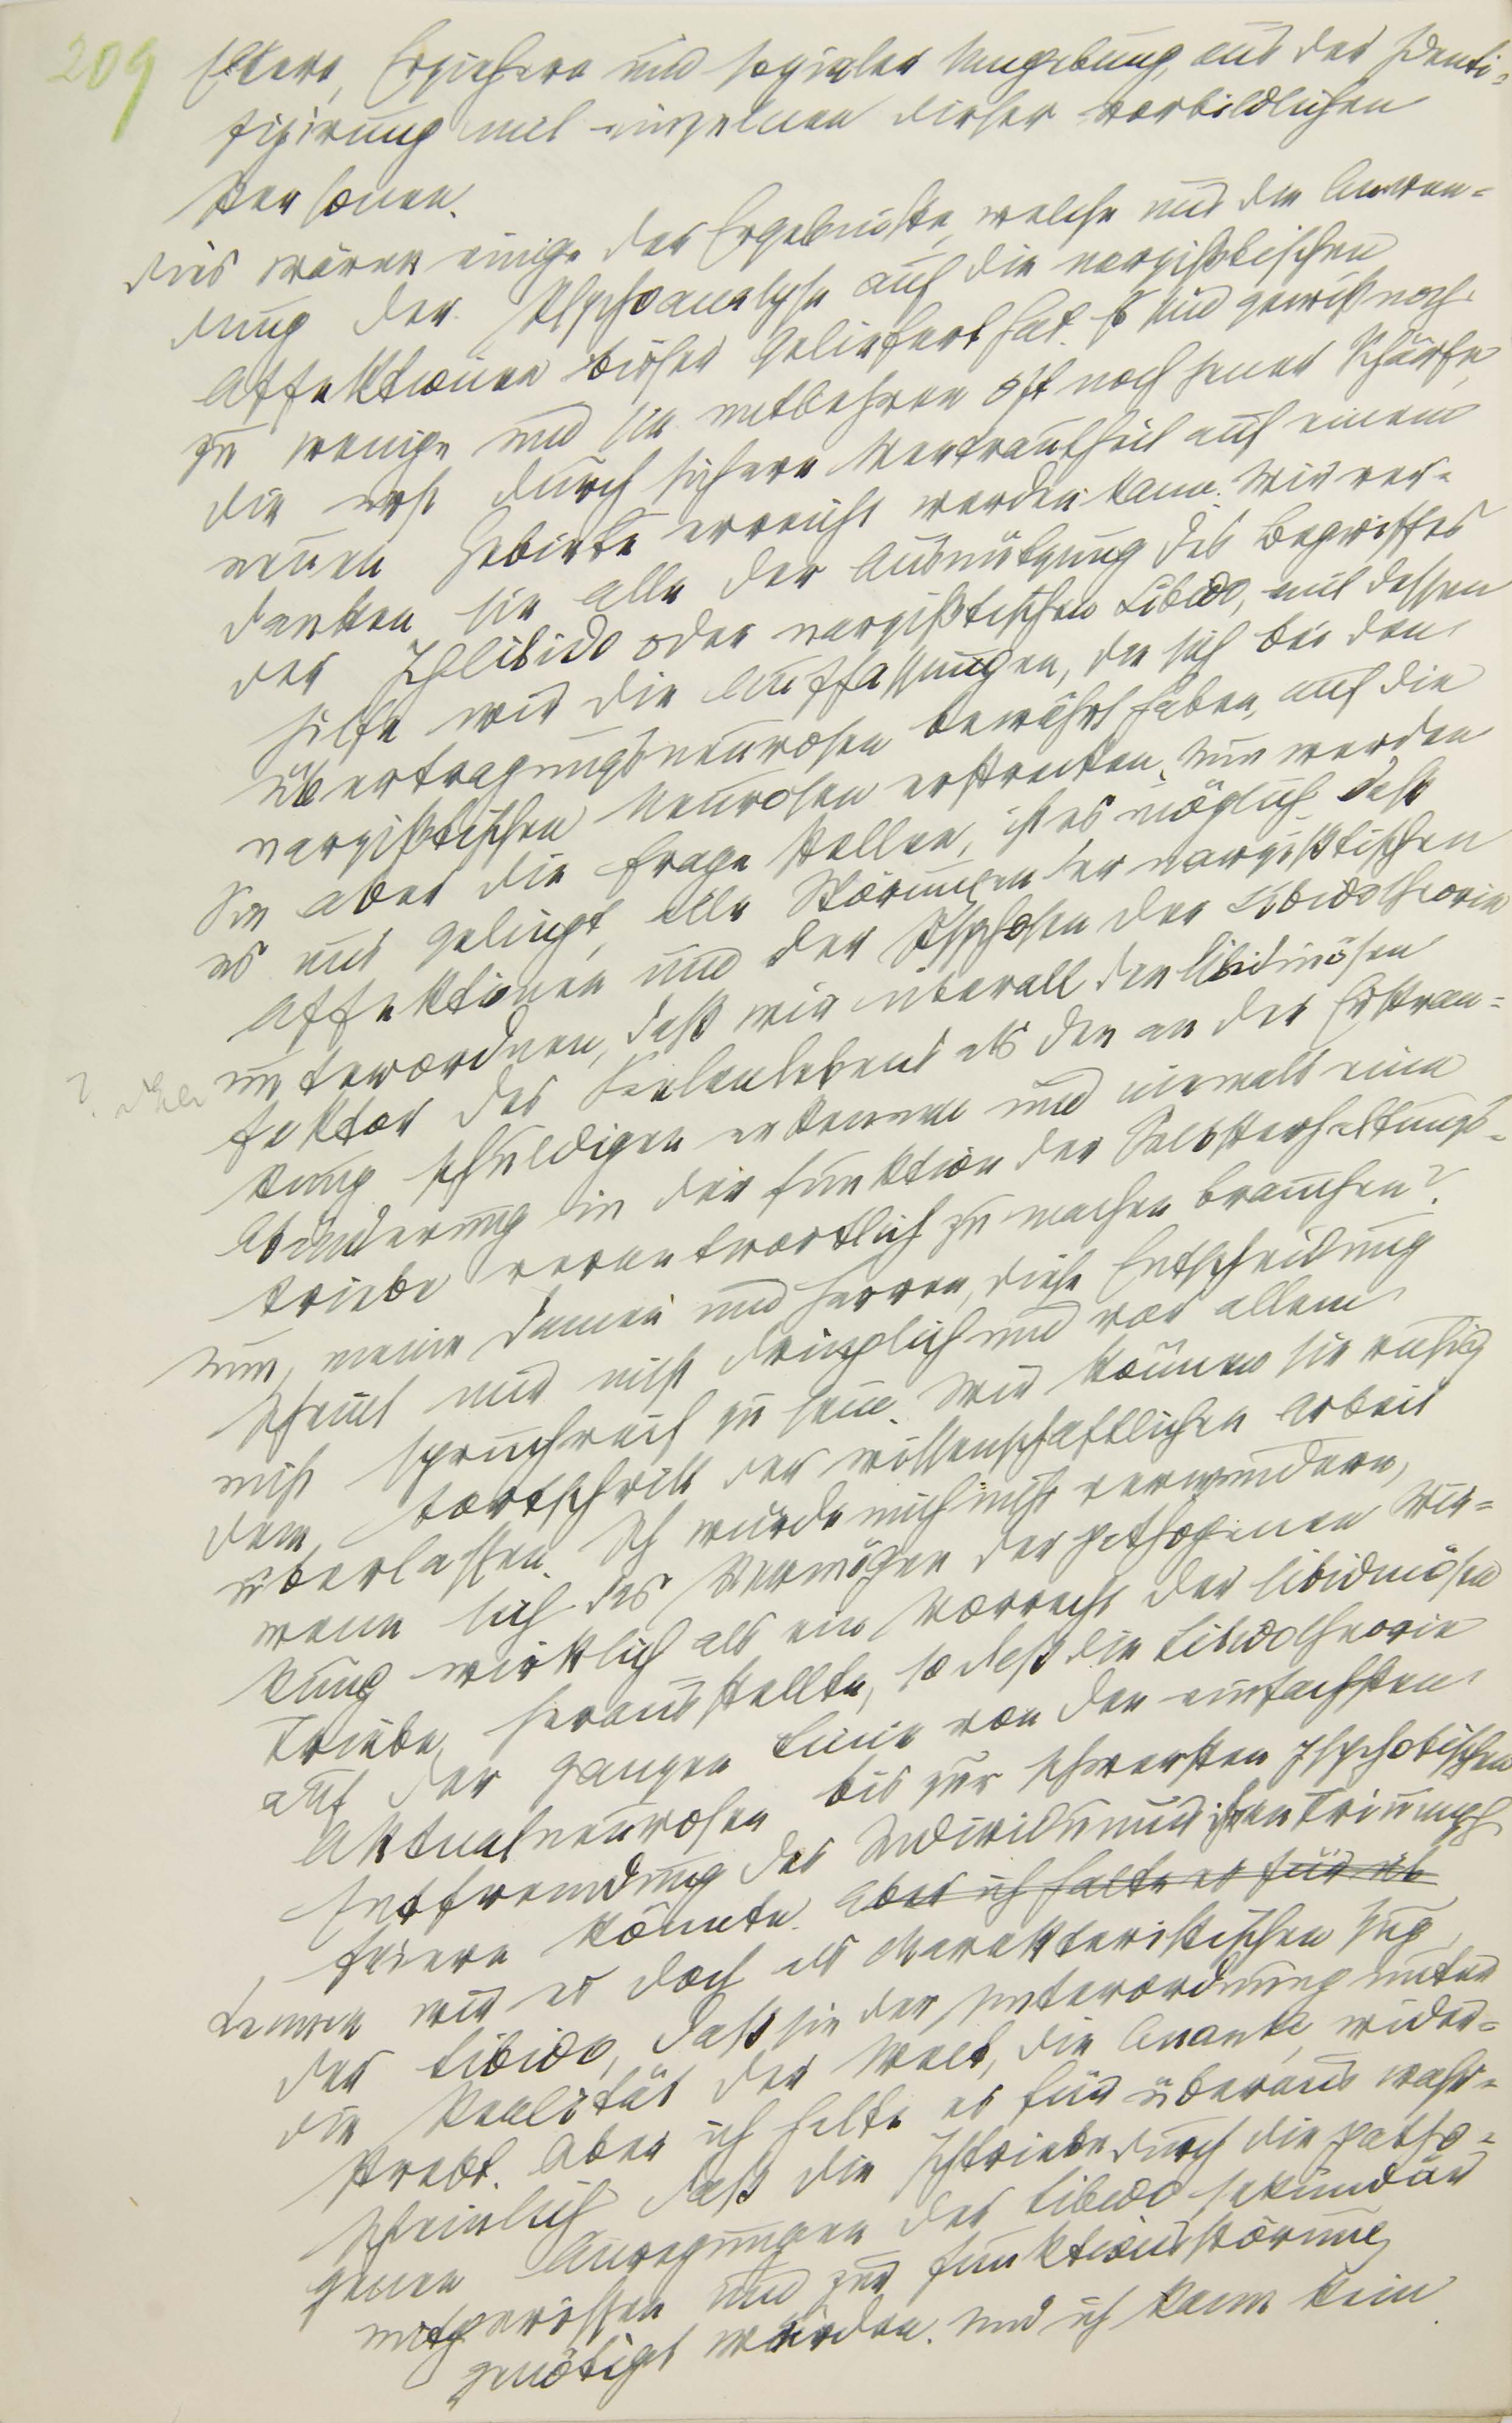 209
Eltern, Erziehern und sozialer Umgebung, aus der Identi=
fizirung mit einzelnen dieser vorbildlichen
Personen.
Dies wären einige der Ergebnisse, welche uns die Anwen=
dung der Psychoanalyse auf die narzißtischen
Affektionen bisher geliefert hat. Es sind gewiß noch
zu wenige und sie entbehren oft noch jener Schärfe,
die erst durch sichere Vertrautheit auf einem
neuen Gebiete erreicht werden kann. Wir ver=
danken sie alle der Ausnützung des Begriffes
der Ichlibido oder narzißtischen Libido, mit dessen
Hilfe wir die Auffassungen, die sich bei den
Übertragungsneurosen bewährt haben, auf die
narzißtischen Neurosen erstrecken. Nun werden
Sie aber die Frage stellen, ist es möglich, daß
es uns gelingt, alle Störungen der narzißtischen
Affektionen und der Psychosen der Libidotheorie
unterordnen, daß wir überall den libidinösen
?
Faktor des Seelenlebens als den an der Erkran=
kung schuldigen erkennen und niemals eine
Abänderung in der Funktion der Selbsterhaltungs=
triebe verantwortlich zu machen brauchen?
Nun, meine Damen und Herren, diese Entscheidung
scheint mir nicht dringlich und vor allem
nicht spruchreif zu sein. Wir können sie ruhig
dem Fortschritt der wissenschaftlichen Arbeit
überlassen. Ich würde mich nicht verwundern,
wenn sich das Vermögen der pathogenen Wir=
kung wirklich als ein Vorrecht der libidinösen
Triebe herausstellte, so daß die Libidotheorie
auf der ganzen Linie von den einfachsten
Aktualneurosen bis zur schwersten psychotischen
Entfremdung des Individuums ihren Triumph
feiern könnte. Aber ich halte es für üb
Kennen wir es doch als charakteristischen Zug
der Libido, daß sie der Unterordnung unter
die Realität der Welt, die Ananke, wider=
strebt. Aber ich halte es für überaus wahr=
scheinlich, daß die Ichtriebe durch die patho=
genen Anregungen der Libido sekundär
mitgerissen und zur Funktionsstörung
genötigt würden. Und ich kann kein